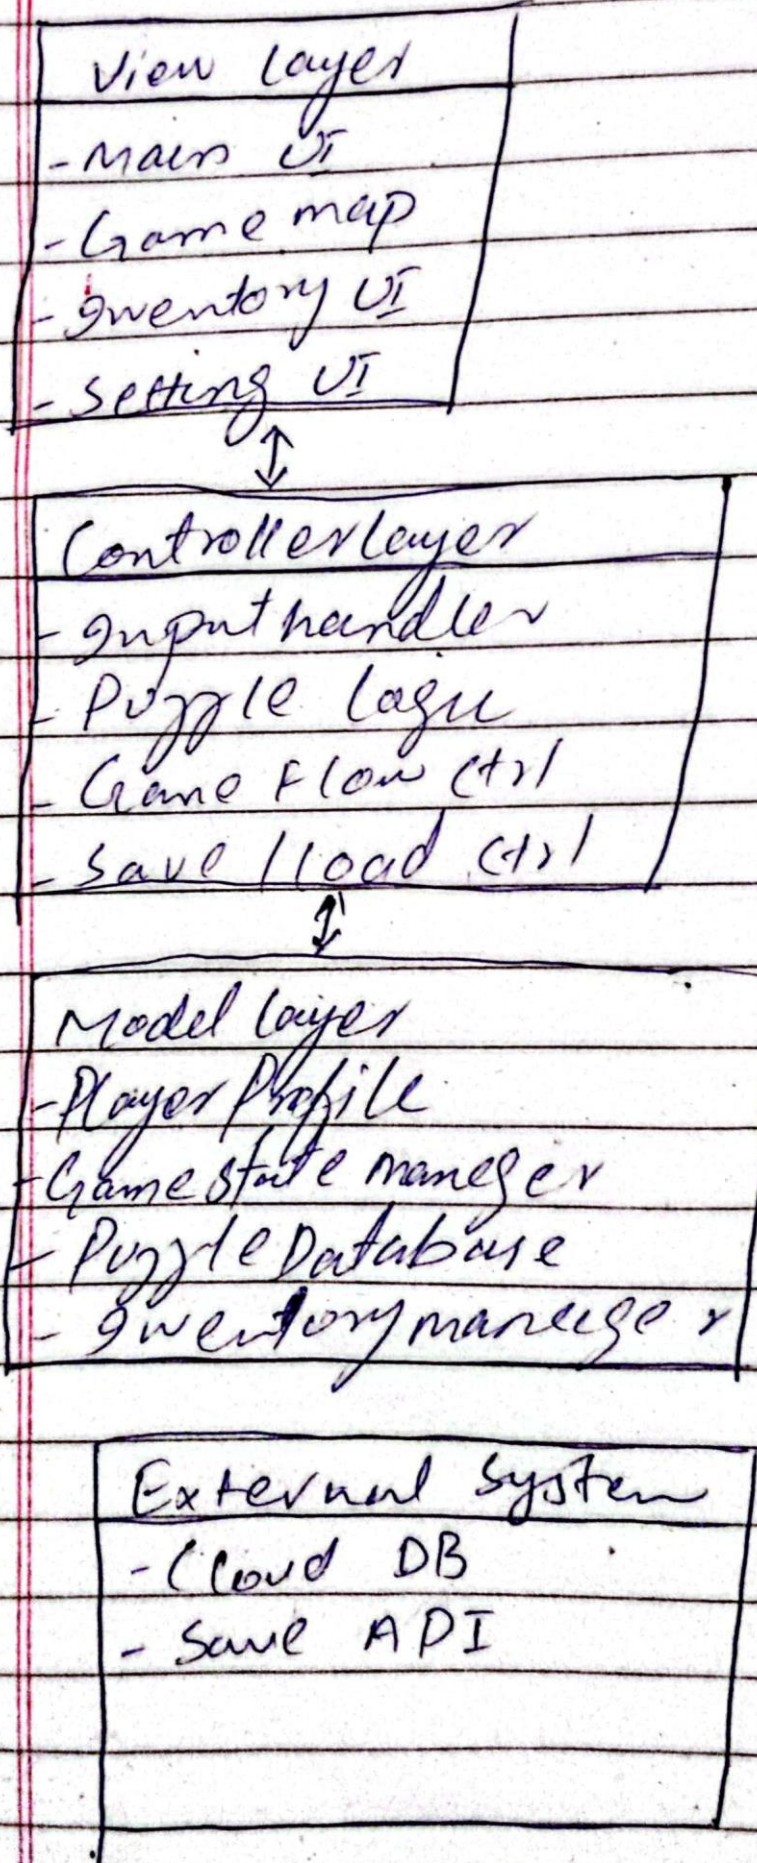 View Layer
- Main UI
- Game map
- Inventory UI
- Setting UI
Controller Layer
- Input handler
- Puzzle Logic
- Game Flow Ctrl
- Save / load Ctrl
Model Layer
- Player Profile
- Game state maneger
- Puzzle Database
- Inventory manager
External System
- Cloud DB
- Save API